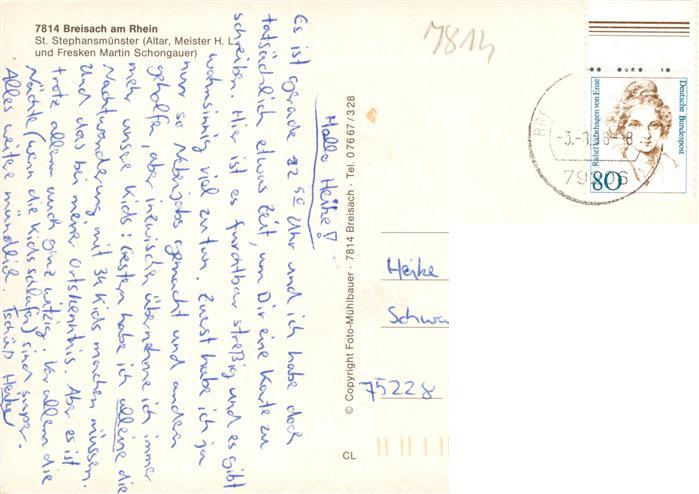 7814 Breisach am Rhein
St. Stephansmünster (Altar, Meister H. L.
und Fresken Martin Schongauer)
7814
Hallo Heike!
Es ist gerade 22 50 Uhr und ich habe doch
tatsächlich etwas Zeit, um Dir eine Karte zu
schreiben. Hier ist es furchtbar streßig und es gibt
wahnsinnig viel zu tun. Zuerst habe ich ja
nur so Nebenjobs gemacht und anderen
geholfen, aber inzwischen übernehme ich immer
mehr unsre Kids: Gestern habe ich alleine die
Nachtwanderung mit 34 Kids machen müssen.
Und das bei meiner Ortskenntnis. Aber es ist
trotz allem auch ganz witzig. Vor allem die
Nächte (wenn die Kids schlafen) sind super.
Alles weitere mündlich. Tschüß Heike
© Copyright Foto-Mühlbauer · 7814 Breisach · Tel. 07667/328
CL
Heike
Schwa
75228
Deutsche Bundespost
Rahel Varnhagen von Ense
80
79206